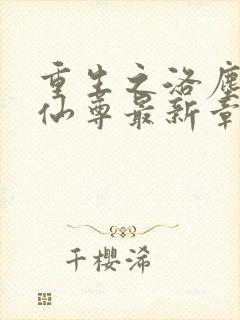 重生之洛塵
仙尊最新章
千櫻浠